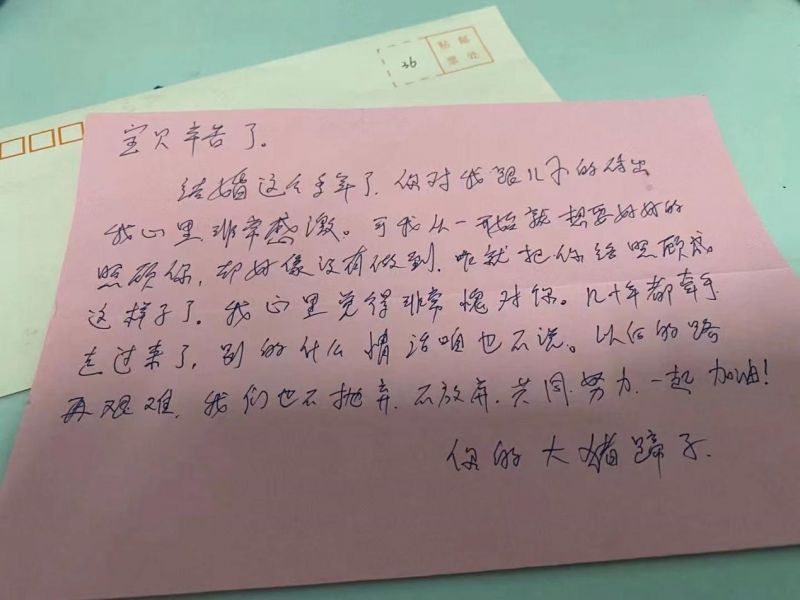 36
贴 邮
票 处
宝贝辛苦了。
结婚这么多年了,你对我跟儿子的付出
我心里非常感激。可我从一开始就想要好好的
照顾你,却好像没有做到,咋就把你给照顾成
这样子了。我心里觉得非常愧对你。几十年都牵手
走过来了,别的什么情话咱也不说。以后的路
再艰难,我们也不抛弃.不放弃.共同.努力.一起加油!
你的大猪蹄子.